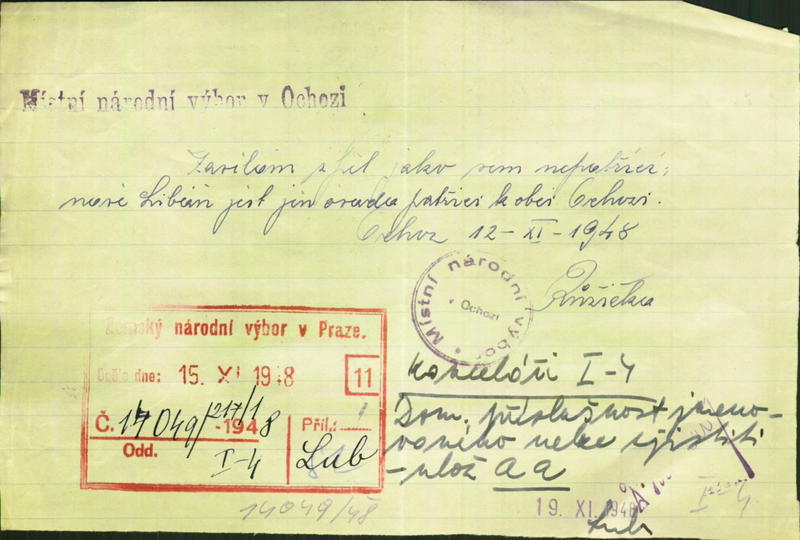 Místní národní výbor v Ochozi
Zasílám zpět jako sem nepatřící,
nové Libčan jest jen osada patřící k obci Ochozi.
Ochoz 12-XI-1948
Růžička
Místní národní výbor
v Ochozi
Zemský národní výbor v Praze.
Došlo dne: 15. XI 1948
11
Č. 14049/217/1 -1948
Příl.: 1
Odd. I-4
Lub
kanceláři I-4
Dom. příslušnost jmeno-
vaného nelze zjistiti
- ulož a a
19. XI. 1948
I-4
Lub
14049/48